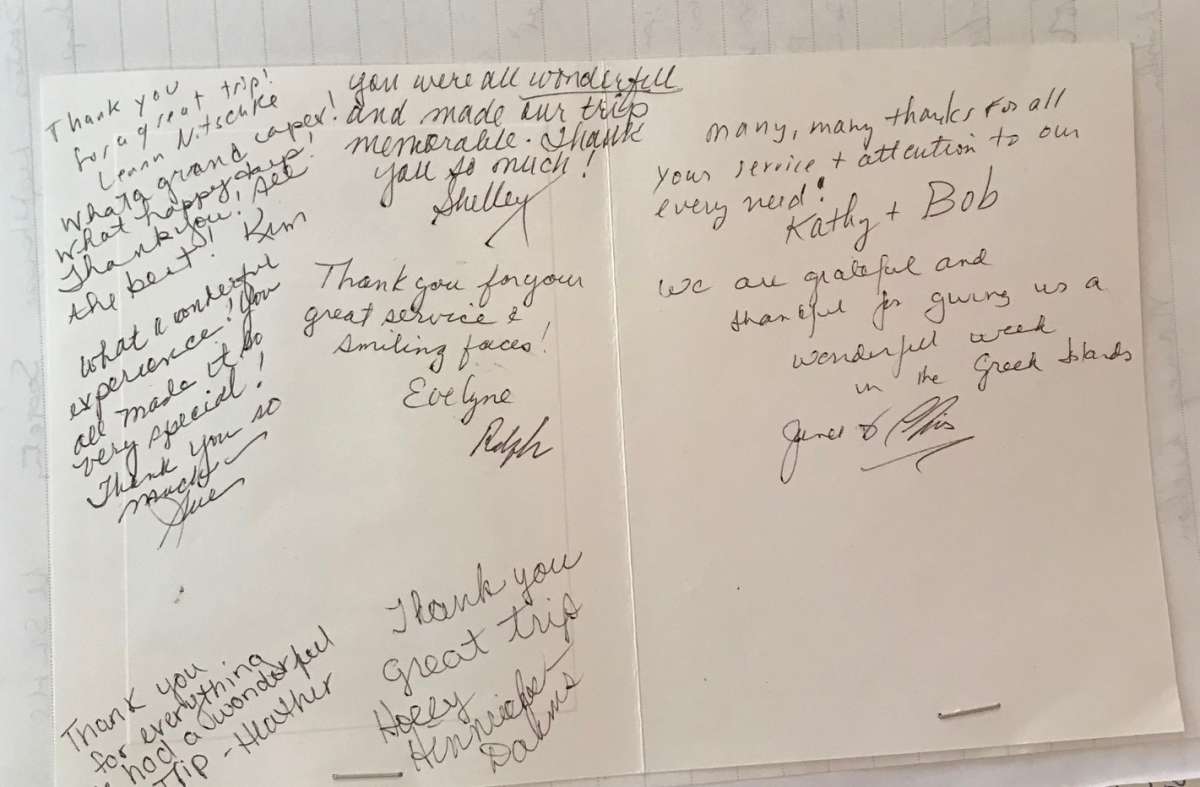 Thank you
for a great trip!
Leann Nitschke
What a grand caper!
What happy days!
Thank you! All
the best! Kim
What a wonderful
experience! You
all made it so
very special!
Thank you so
much
Sue
you were all wonderful
and made our trip
memorable. Thank
you so much!
Shelley
Thank you for your
great service &
smiling faces!
Evelyne
Ralph
Thank you
for everything
had a wonderful
Trip - Heather
Thank you
great trip
Holly
many, many thanks for all
your service + attention to our
every need!
Kathy + Bob
We are grateful and
thankful for giving us a
wonderful week
in the Greek Islands